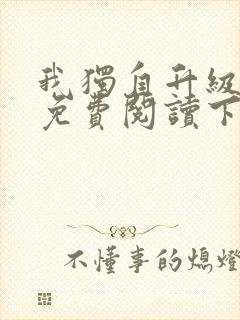 我獨自升級
免費閱讀下
不懂事的熄燈